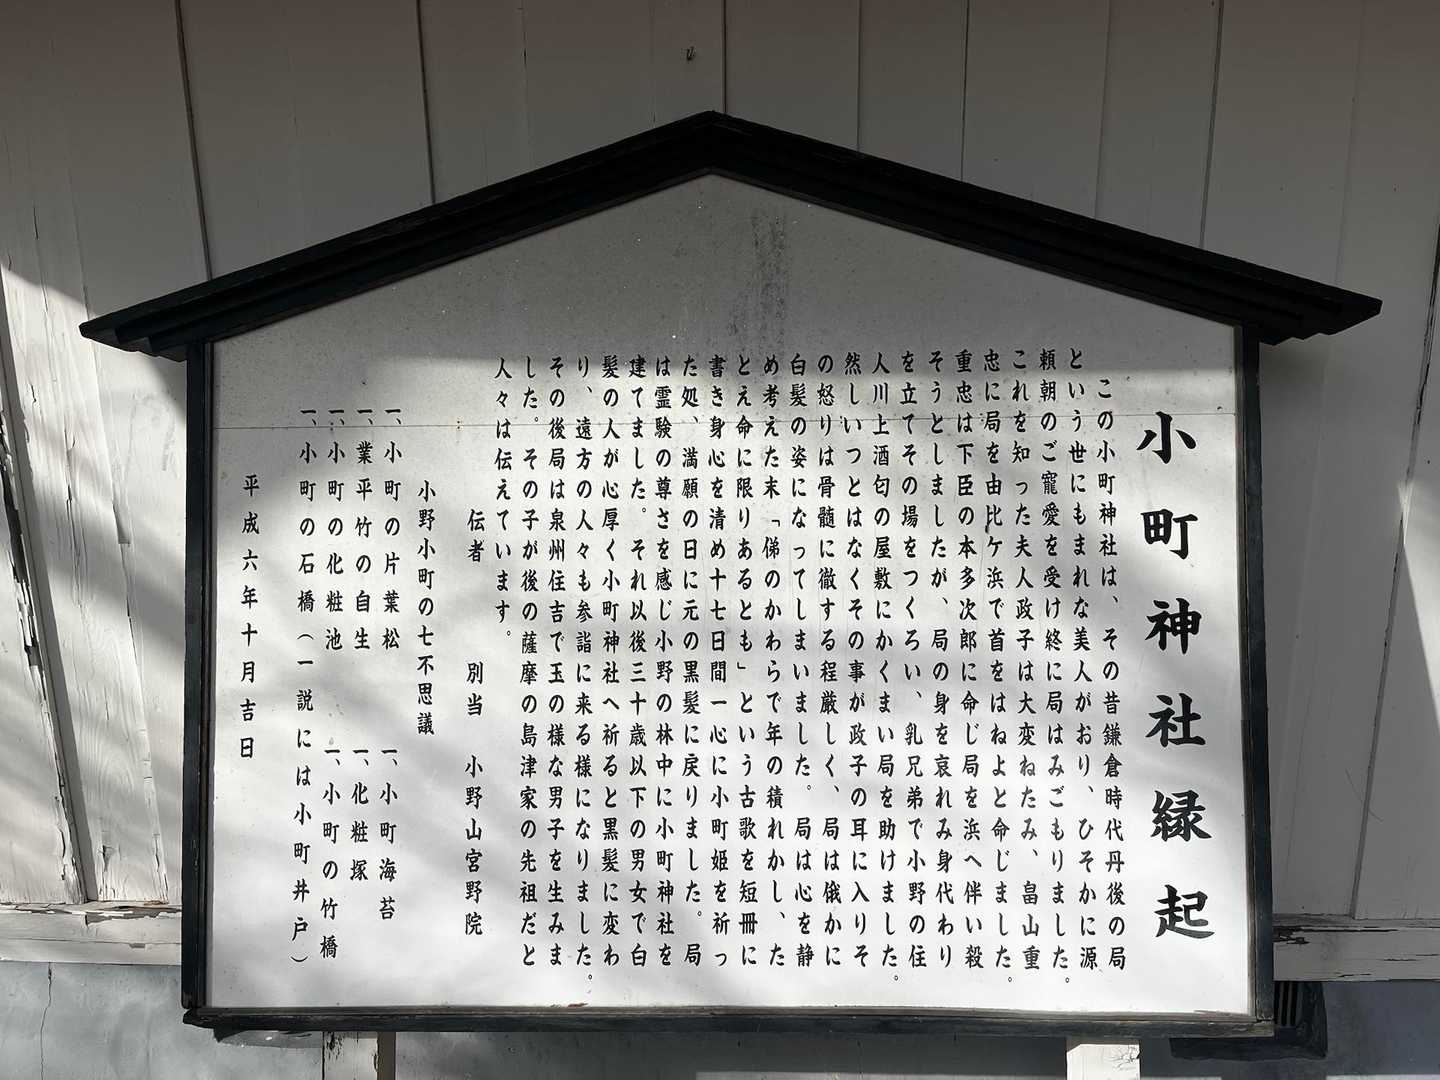 小町神社縁起
この小町神社は、その昔鎌倉時代丹後の局
という世にもまれな美人がおり、ひそかに源
頼朝のご寵愛を受け終に局はみごもりました。
これを知った夫人政子は大変ねたみ、畠山重
忠に局を由比ケ浜で首をはねよと命じました。
重忠は下臣の本多次郎に命じ局を浜へ伴い殺
そうとしましたが、局の身を哀れみ身代わり
を立てその場をつくろい、乳兄弟で小野の住
人川上酒匂の屋敷にかくまい局を助けました。
然しいつとはなくその事が政子の耳に入りそ
の怒りは骨髄に徹する程厳しく、局は俄かに
白髪の姿になってしまいました。局は心を静
め考えた末「俤のかわらで年の積れかし、た
とえ命に限りあるとも」という古歌を短冊に
書き身心を清め十七日間一心に小町姫を祈っ
た処、満願の日に元の黒髪に戻りました。局
は霊験の尊さを感じ小野の林中に小町神社を
建てました。それ以後三十歳以下の男女で白
髪の人が心厚く小町神社へ祈ると黒髪に変わ
り、遠方の人々も参詣に来る様になりました。
その後局は泉州住吉で玉の様な男子を生みま
した。その子が後の薩摩の島津家の先祖だと
人々は伝えています。
伝者 別当 小野山宮野院
小野小町の七不思議
一、小町の片葉松 一、小町海苔
一、業平竹の自生 一、化粧塚
一、小町の化粧池 一、小町の竹橋
一、小町の石橋(一説には小町井戸)
平成六年十月吉日